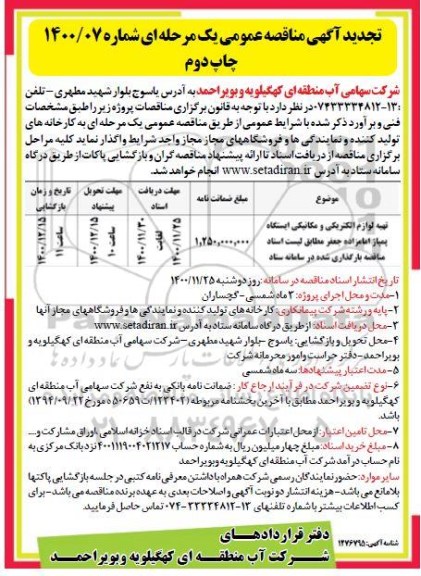 تجدید آگهی مناقصه عمومی یک مرحله ای شماره ۱۴۰۰/۰۷
چاپ دوم
شرکت سهامی آب منطقه ای کهگیلویه و بویر احمد به آدرس یاسوج بلوار شهید مطهری – تلفن
۱۳-۰۷۴۳۳۳۳۴۸۱۲ در نظر دارد با توجه به قانون برگزاری مناقصات پروژه زیر را طبق مشخصات
فنی و بر آورد ذکر شده با شرایط عمومی از طریق مناقصه عمومی یک مرحله ای به کارخانه های
تولید کننده و نمایندگی ها و فروشگاههای مجاز مجاز واجد شرایط واگذار نماید کلیه مراحل
برگزاری مناقصه از دریافت اسناد تا ارائه پیشنهاد مناقصه گران و بازگشایی پاکات از طریق درگاه
سامانه ستاد به آدرس www.setadiran.ir انجام خواهد شد.
موضوع
مبلغ ضمانت نامه
مهلت دریافت اسناد
مهلت تحویل پیشنهاد
تاریخ و زمان بازگشایی
تهیه لوازم الکتریکی و مکانیکی ایستگاه
پمپاژ امامزاده جعفر مطابق لیست اسناد
مناقصه بارگذاری شده در سامانه ستاد
۱,۲۵۰,۰۰۰,۰۰۰
۱۴۰۰/۱۱/۲۵ لغایت ۱۴۰۰/۱۱/۳۰
۱۴۰۰/۱۲/۱۵ ساعت ۱۰
۱۴۰۰/۱۲/۱۵ ساعت ۱۱
تاریخ انتشار اسناد مناقصه در سامانه: روز دوشنبه ۱۴۰۰/۱۱/۲۵
۱-مدت و محل اجرای پروژه: ۲ ماه شمسی-گچساران
۲-پایه و رشته شرکت پیمانکاری: کارخانه های تولید کننده و نمایندگی ها و فروشگاههای مجاز آنها
۳-محل دریافت اسناد: از طریق درگاه سامانه ستاد به آدرس www.setadiran.ir
۴-محل تحویل و بازگشایی: یاسوج -بلوار شهید مطهری –شرکت سهامی آب منطقه ای کهگیلویه و
بویراحمد-دفتر حراست و امور محرمانه شرکت
۵-مدت اعتبار پیشنهادها: سه ماه شمسی
۶-نوع تضمین شرکت در فرآیند ارجاع کار: ضمانت نامه بانکی به نفع شرکت سهامی آب منطقه ای
کهگیلویه و بویر احمد مطابق با آخرین بخشنامه مربوطه (۱۲۳۴۰۲/ت۵۰۶۵۹ ه مورخ ۱۳۹۴/۰۹/۲۲)
باشد.
۷-محل تامین اعتبار: از محل اعتبارات عمرانی شرکت در قالب اسناد خزانه اسلامی، اوراق مشارکت و...
۸-مبلغ خرید اسناد: مبلغ چهار میلیون ریال به شماره حساب ۴۰۰۱۱۱۹۰۰۴۰۲۱۲۱۷ نزد بانک مرکزی به
نام حساب درآمد شرکت آب منطقه ای کهگیلویه وبویراحمد
سایر موارد: حضور نمایندگان رسمی شرکت همراه با داشتن معرفی نامه کتبی در جلسه بازگشایی پاکتها
بلامانع می باشد-هزینه انتشار دو نوبت آگهی و اصلاحات بعدی به عهده برنده مناقصه می باشد-برای
کسب اطلاعات بیشتر با شماره تلفنهای ۱۳-۳۳۳۳۴۸۱۲-۰۷۴ تماس حاصل فرمایید.
شناسه آگهی: ۱۲۷۶۷۹۵
دفتر قراردادهای
شرکت آب منطقه ای کهگیلویه وبویر احمد